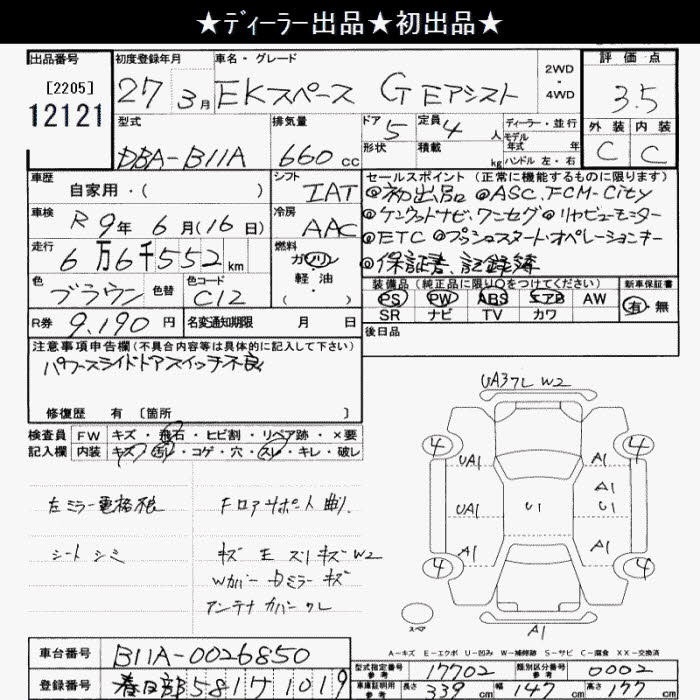 ★ディーラー出品★初出品★
出品番号
[2205]
12121
初度登録年月
27年 3月
車名・グレード
EKスペース G Eアシスト
2WD
・
4WD
評価点
3.5
外装 内装
C C
型式
DBA-B11A
排気量
660cc
ドア 5
形状
定員 4人
積載 kg
ディーラー・並行
モデル
年式 年
ハンドル 左・右
車歴
自家用・( )
シフト
IAT
車検
R 9年 6月(16日)
冷房
AAC
走行
6万6千552km
燃料
ガソリン
軽油
( )
色
ブラウン
色替
色コード
C12
R券
9,190円
名変通知期限 月 日
セールスポイント(正常に機能するものに限ります)
◎初出品 ◎ASC、FCM-City
◎ケンウッドナビ、ワンセグ ◎リヤビューモニター
◎ETC ◎プッシュスタート・オペレーションキー
◎保証書、記録簿
装備品(純正品に限り○をつけてください)
PS PW ABS エアB AW
SR ナビ TV カワ
新車保証書
有・無
後日品
注意事項申告欄(不具合内容等は具体的に記入して下さい)
パワースライドドアスイッチ不良
修復歴 有[箇所 ]
検査員
記入欄
FW キズ・飛石・ヒビ割・リペア跡・×要
内装 キズ・汚れ・コゲ・穴・スレ・キレ・破レ
左ミラー電格
シートシミ
Fロアサポート曲り
キズ W2
Wカバー ミラーキズ
アンテナカバー
UA3 W2
4
4
UA1
A1
A1
UA1
U1
U1
A1
A1
4
4
スペア
A1
A-キズ E-エクボ U-凹み W-補修跡 S-サビ C-腐食 XX-交換済
車台番号
B11A-0026850
登録番号
春日部 581 ケ 1019
型式指定番号
参考
17702
類別区分番号
参考
0002
車庫証明用
参考
長さ 339cm 幅 147cm 高さ 177cm